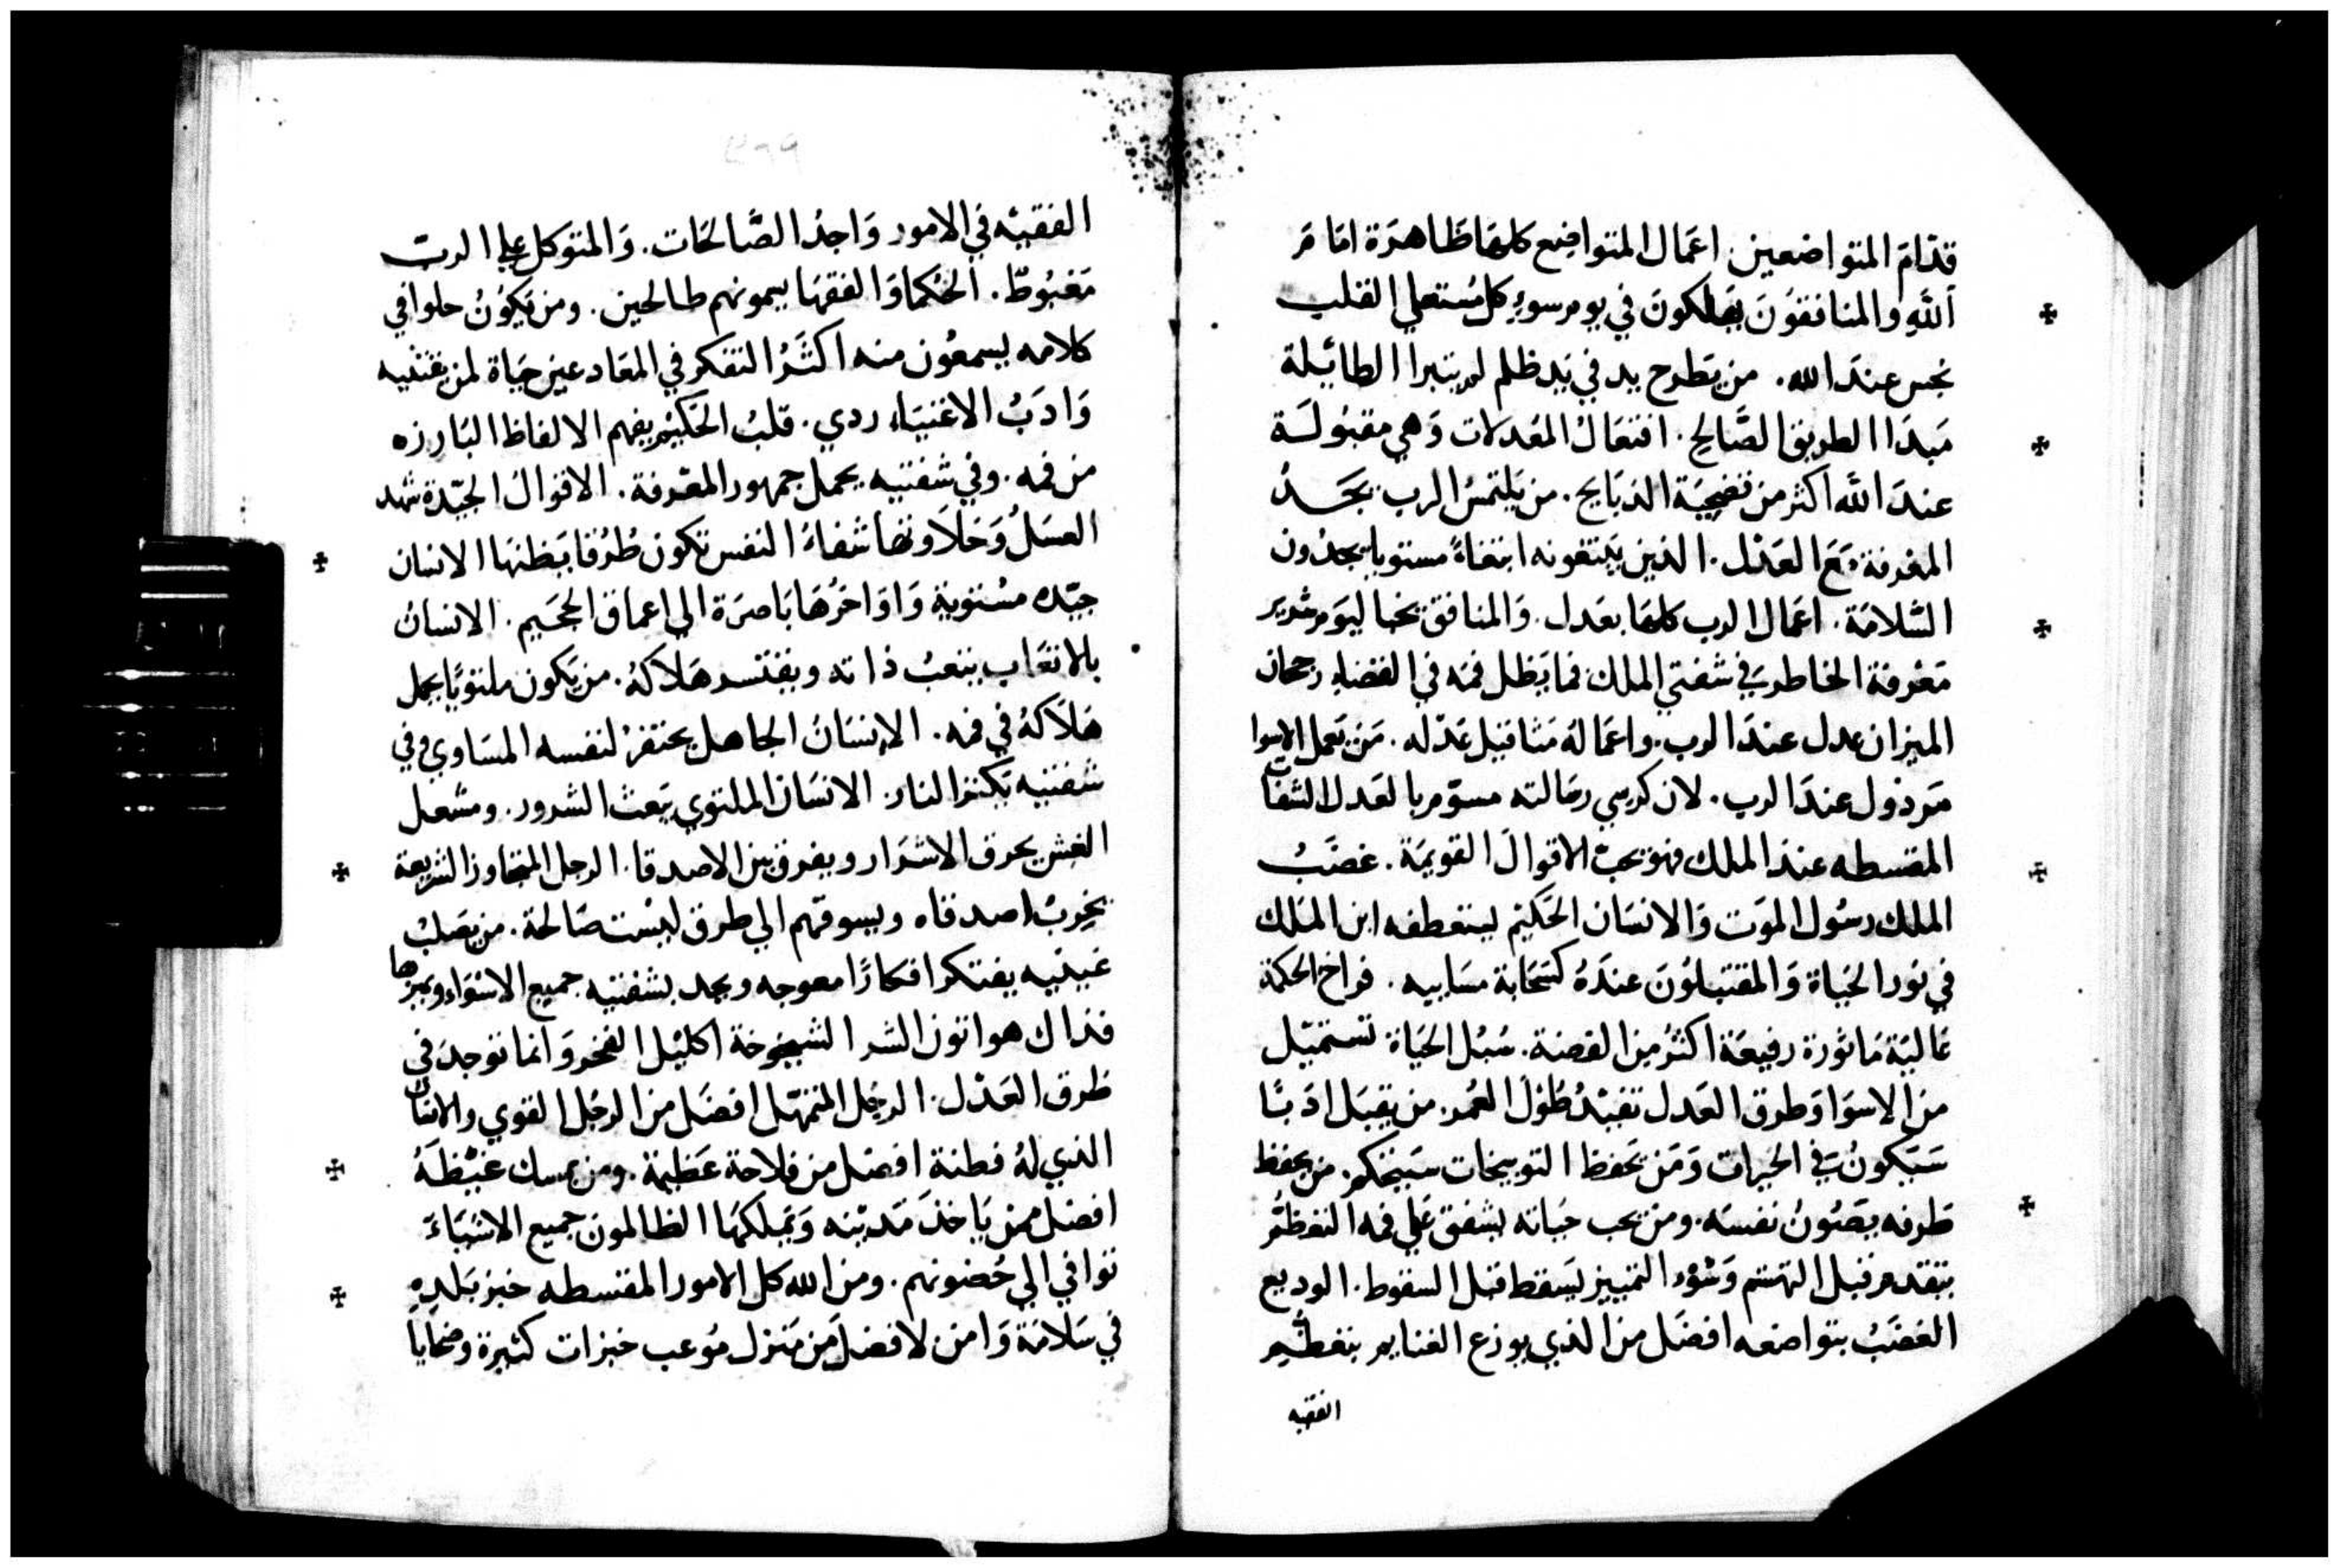 قدّامَ المتواضعين. اعمَال المتواضع كلهَا ظَاهرَة امَامَ
اللهِ والمنافقوُنَ يهَلكونَ في يومر سوءٍ كل مُستعلي القلب
نجس عندَ الله. من يَطرح يد في يَد ظلم لم يتبرا الطايَلة
مَبدَا الطريق الصَّالحِ. افتعَالُ المعُدلات وَهي مقبُولَة
عندَ الله اكثر من تضحِيَة الذبَايح. من يَلتمسُ الرب يجَدُ
المعْرفة مَعَ العَدْل. الذين يَبتغونه ابتغاءً مستويا يجدُون
السَّلامَة. اعمَال الرب كلهَا بعَدل. وَالمنافق يخبا ليوَمِ شرير
مَعْرفة الخاطر يَفي شفتي الملك فما يَظل فمَه في القضاءِ رجحان
الميزان عدل عندَ الرب. واعمَالهُ مَثاقيل عَدْله. مَن يَعمل الاسوا
مَرذول عندَ الرب. لان كرسي رئالته مسوّم بالعَدل الشفات
المقسطه عند الملك فهو يحبّ الاقوالَ القويمَة. غضَبُ
الملك رسُول الموَت وَالانسَان الحَكيْم ليستعطفه ابن الملك
في نوُر الحَياة وَالمقتبلوُنَ عندَهُ كسَحَابة مسَاييه. فراخ الحكمة
غاليَة مَاثورة رفيعَة اكثرُ مِن الفضة. سُبُل الحَيَاة تستميّل
من الاسوَا وَطرق العَدل تفيْدُ طُوْلَ العُمر. من يقبَل ادَبًا
سَيَكونُ في الخيرات وَمَن يَحفظ التوبيخات سَيَتحكم. من يحفظ
طرقه يصَوُنُ نفسَه. ومن يحب حيَاته يشفق عَلى فمه التعظّمُ
يتقدم قبل التهشم وَسُوء التمييز يسَقط قبل السقوط. الوديع
الغضَبُ بتواضعه افضَل من الذي يوزع الغنايم بتعظّمٍ
الفقيه
الفقيْه في الامور وَاجدُ الصَّالحَات. وَالمتوَكل على الربّ
مَغبُوطٌ. الحُكما وَالفقهَا يسمونهم صالحين. ومن يَكوُنُ حلوا في
كلامه يسمعُون منه اكثَرُ التفكر في المعَاد عين حيَاة لمن يقتنيه
وَادَبُ الاغنيَاء ردي. قلبُ الحَكيْم يفهم الالفاظ البَارزه
من فمه. وفي شفتيه يحمل جمهور المعْرفة. الاقوالُ الجيّدة شهد
العسَلُ وَحَلاَوتهَا شفاءُ النفس تكون طُرُقا يَظنهَا الانسان
جيّده مسْتوية وَاوَاخرُهَا بَاصرَة الي اعماق الجحَيم. الانسانُ
بالاتعَاب يتعبُ ذاته ويفتسر هَلاَكهُ. من يَكون ملتويًا يحمل
هَلاَكهُ في فمه. الانسَانُ الجاهل يحتفرُ لنفسه المسَاوي وفي
شفتيه يَكنز النار. الانسَان الملتوي يَعث الشرور. ومشعل
الغش يحرق الاشرَار ويفرق بين الاصدقا. الرجل المتجاوز الشريعة
يَخرّبُ اصدقاه ويسوقهم الي طرق ليسْت صَالحة. من يصَلبْ
عَينيَه يفتكر افكارًا معوجه ويحد بشفتيه جميع الاسْوَاء ويبرزها
فذاك هو اتون الشر الشيخوخة اكليْل الفخر وَانما توجدَ في
طَرق العَدْل. الرجُل المتمهّل افضَل من الرجُل القوي والانسَان
الذي لهُ فطنة افضل من فلاحة عَظيمة. ومن يمسك غيْظَهُ
افضل ممن يَاخذ مَديْنه وَيَملكهَا الظالمون جميع الاشيَاءَ
توافي الي حُضونهم. ومن الله كل الامور المقسطه خبز بَلدهِ
في سَلامَة وَامن لافضل مَن مَنزل مُوعب خيرات كثيرة وضحايا